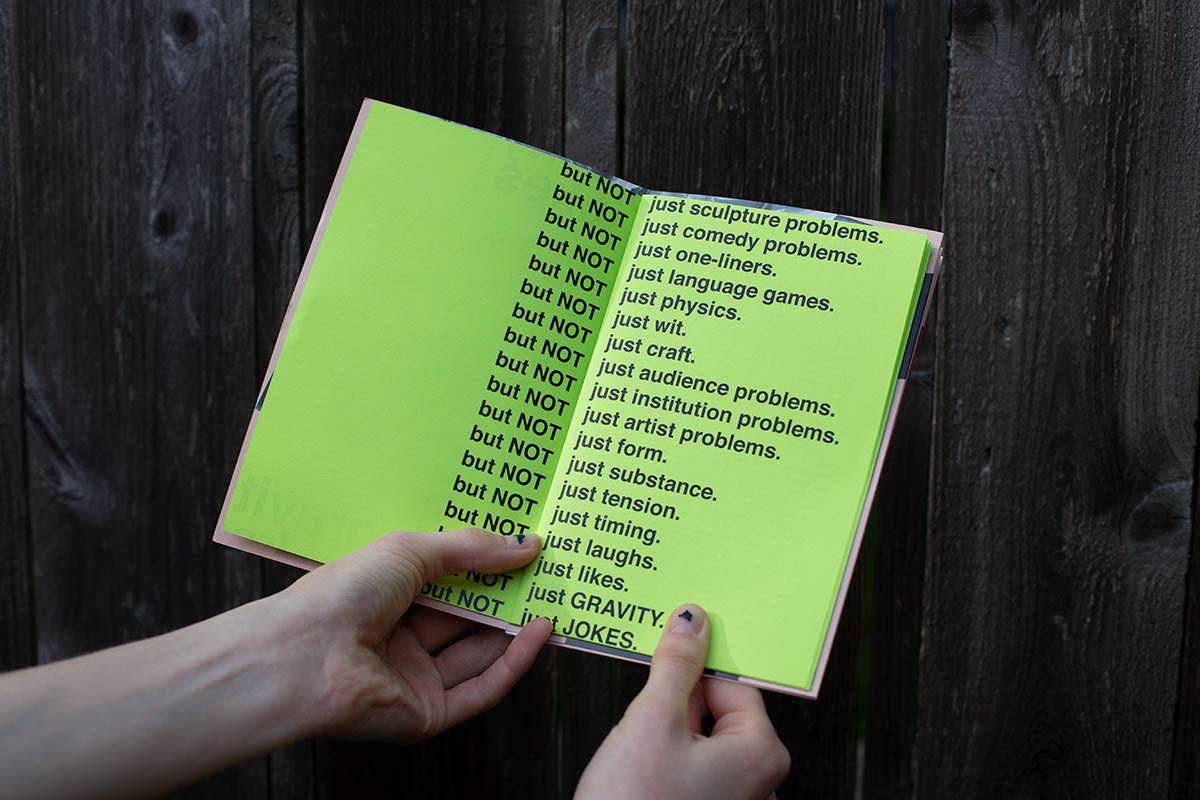 but NOT just sculpture problems.
but NOT just comedy problems.
but NOT just one-liners.
but NOT just language games.
but NOT just physics.
but NOT just wit.
but NOT just craft.
but NOT just audience problems.
but NOT just institution problems.
but NOT just artist problems.
but NOT just form.
but NOT just substance.
but NOT just tension.
but NOT just timing.
but NOT just laughs.
just likes.
NOT just GRAVITY.
but NOT just JOKES.